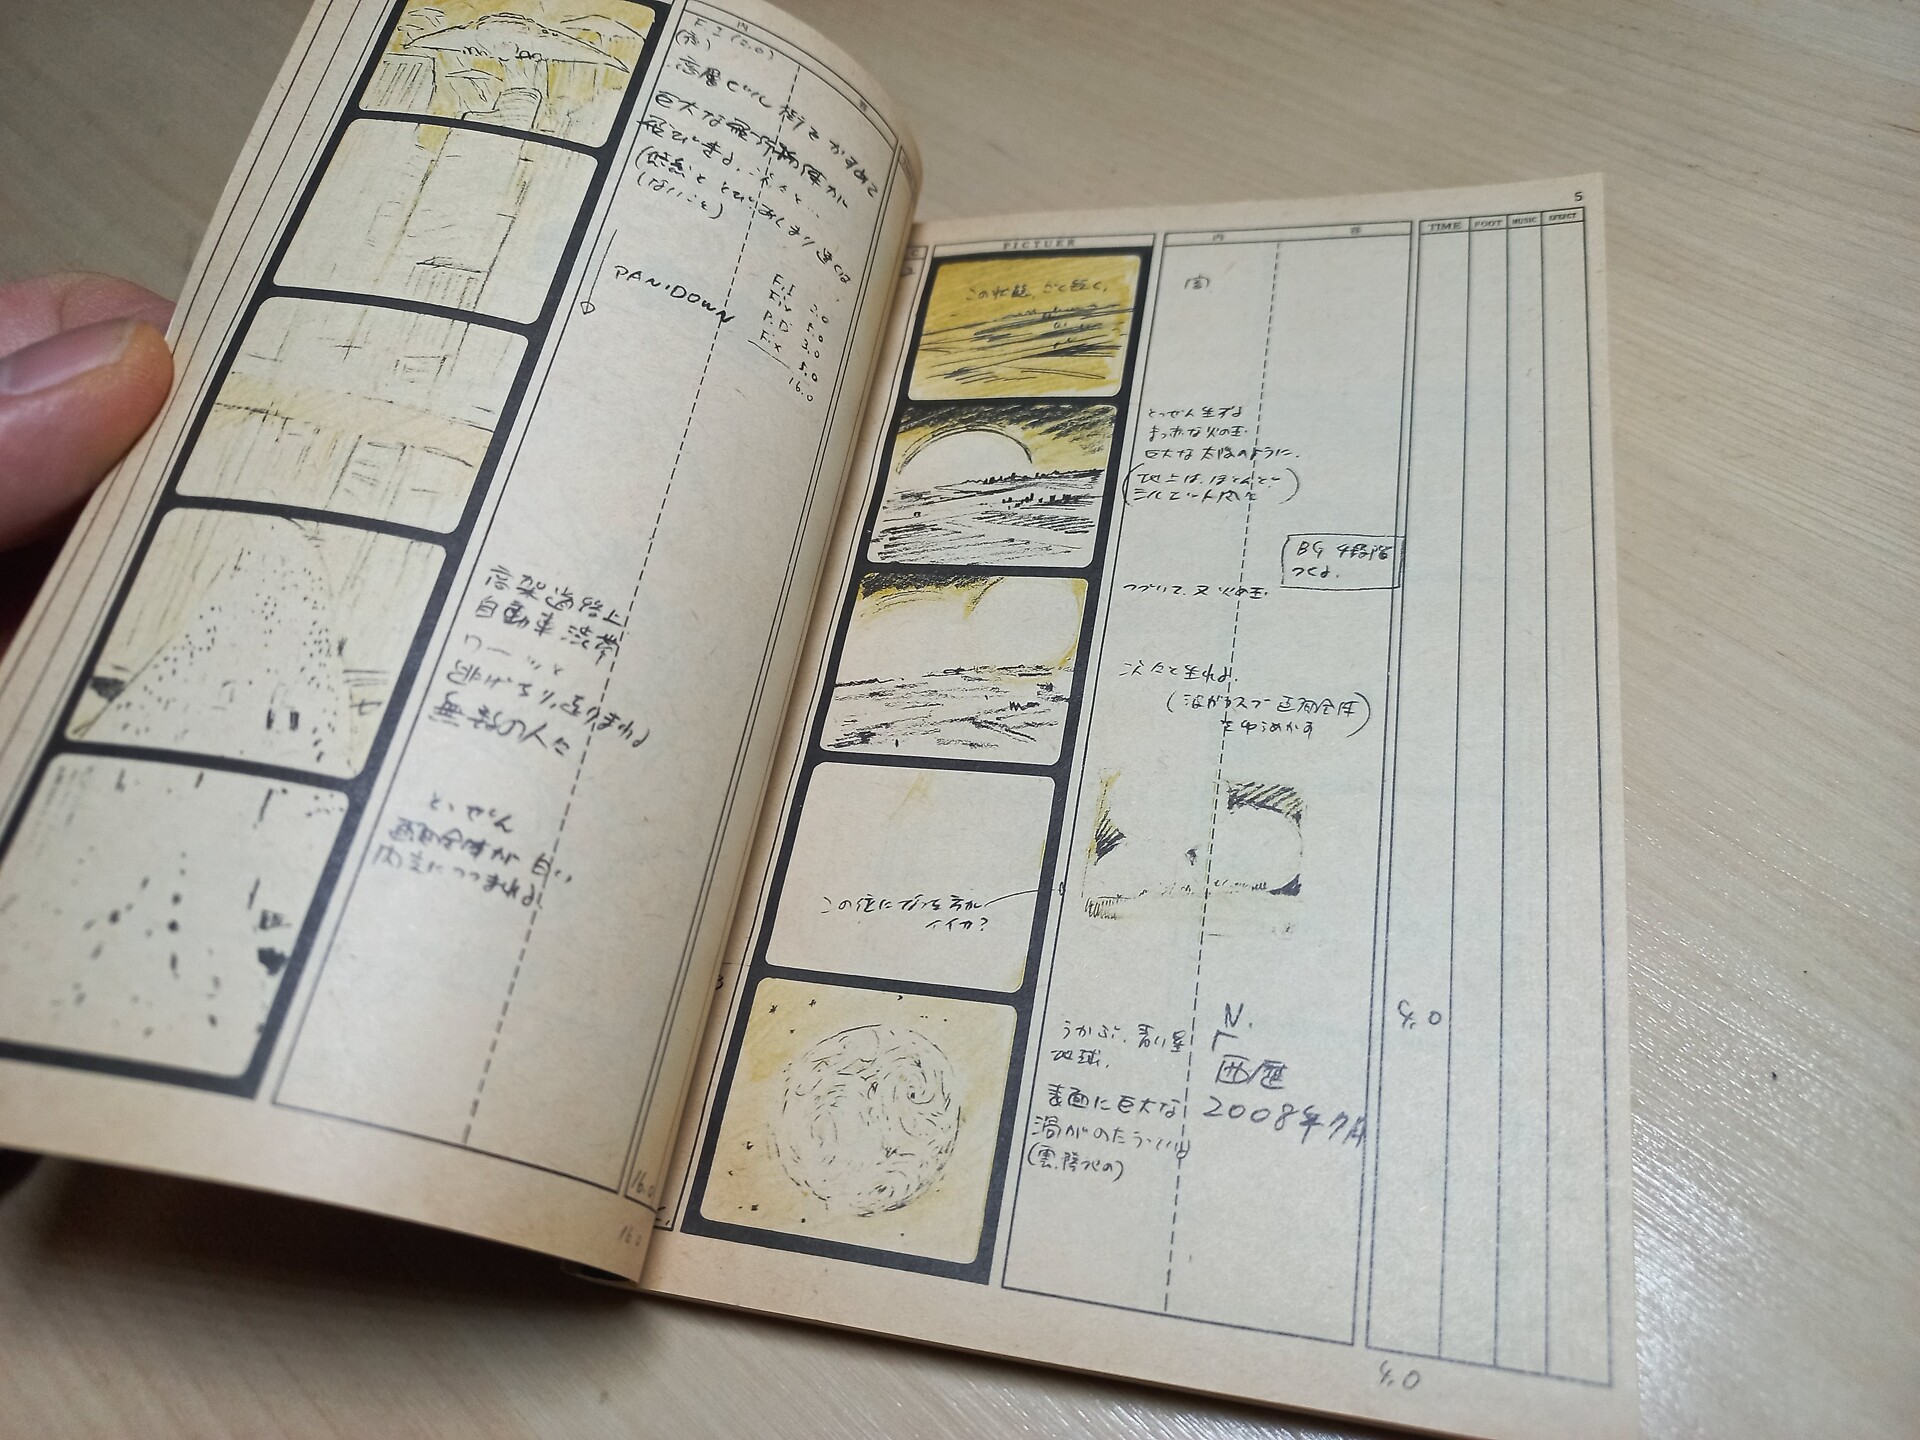 内
F.I (2.0)
(夜)
高層ビル街をかすめて
巨大な飛行物体が
飛びきる。次々と…
PAN.DOWN
F.I 2.0
Fix 5.0
P.D 3.0
Fix
5.0
16.0
高架道路上
自動車渋滞
ワーッと
逃げちり、走りまわる
無数の人々
とつぜん
画面全体が白い
閃光につつまれる。
16.0
16.0
5
PICTUER
内 容
TIME FOOT MUSIC EFFECT
この状態、ごく短く。
とつぜん生ずる
まっ赤な火の玉。
巨大な太陽のように。
(地上は、ほとんど
シルエット風で)
BG 4段階
つくる。
つづいて、又火の玉。
次々と生れる。
画面全体
をゆらめかす
この位になった方が
イイカ?
3
4.0
うかぶ、青い星
地球。
表面に巨大な
渦がのたうっている
N.
「
西歴
2008年7月
4.0